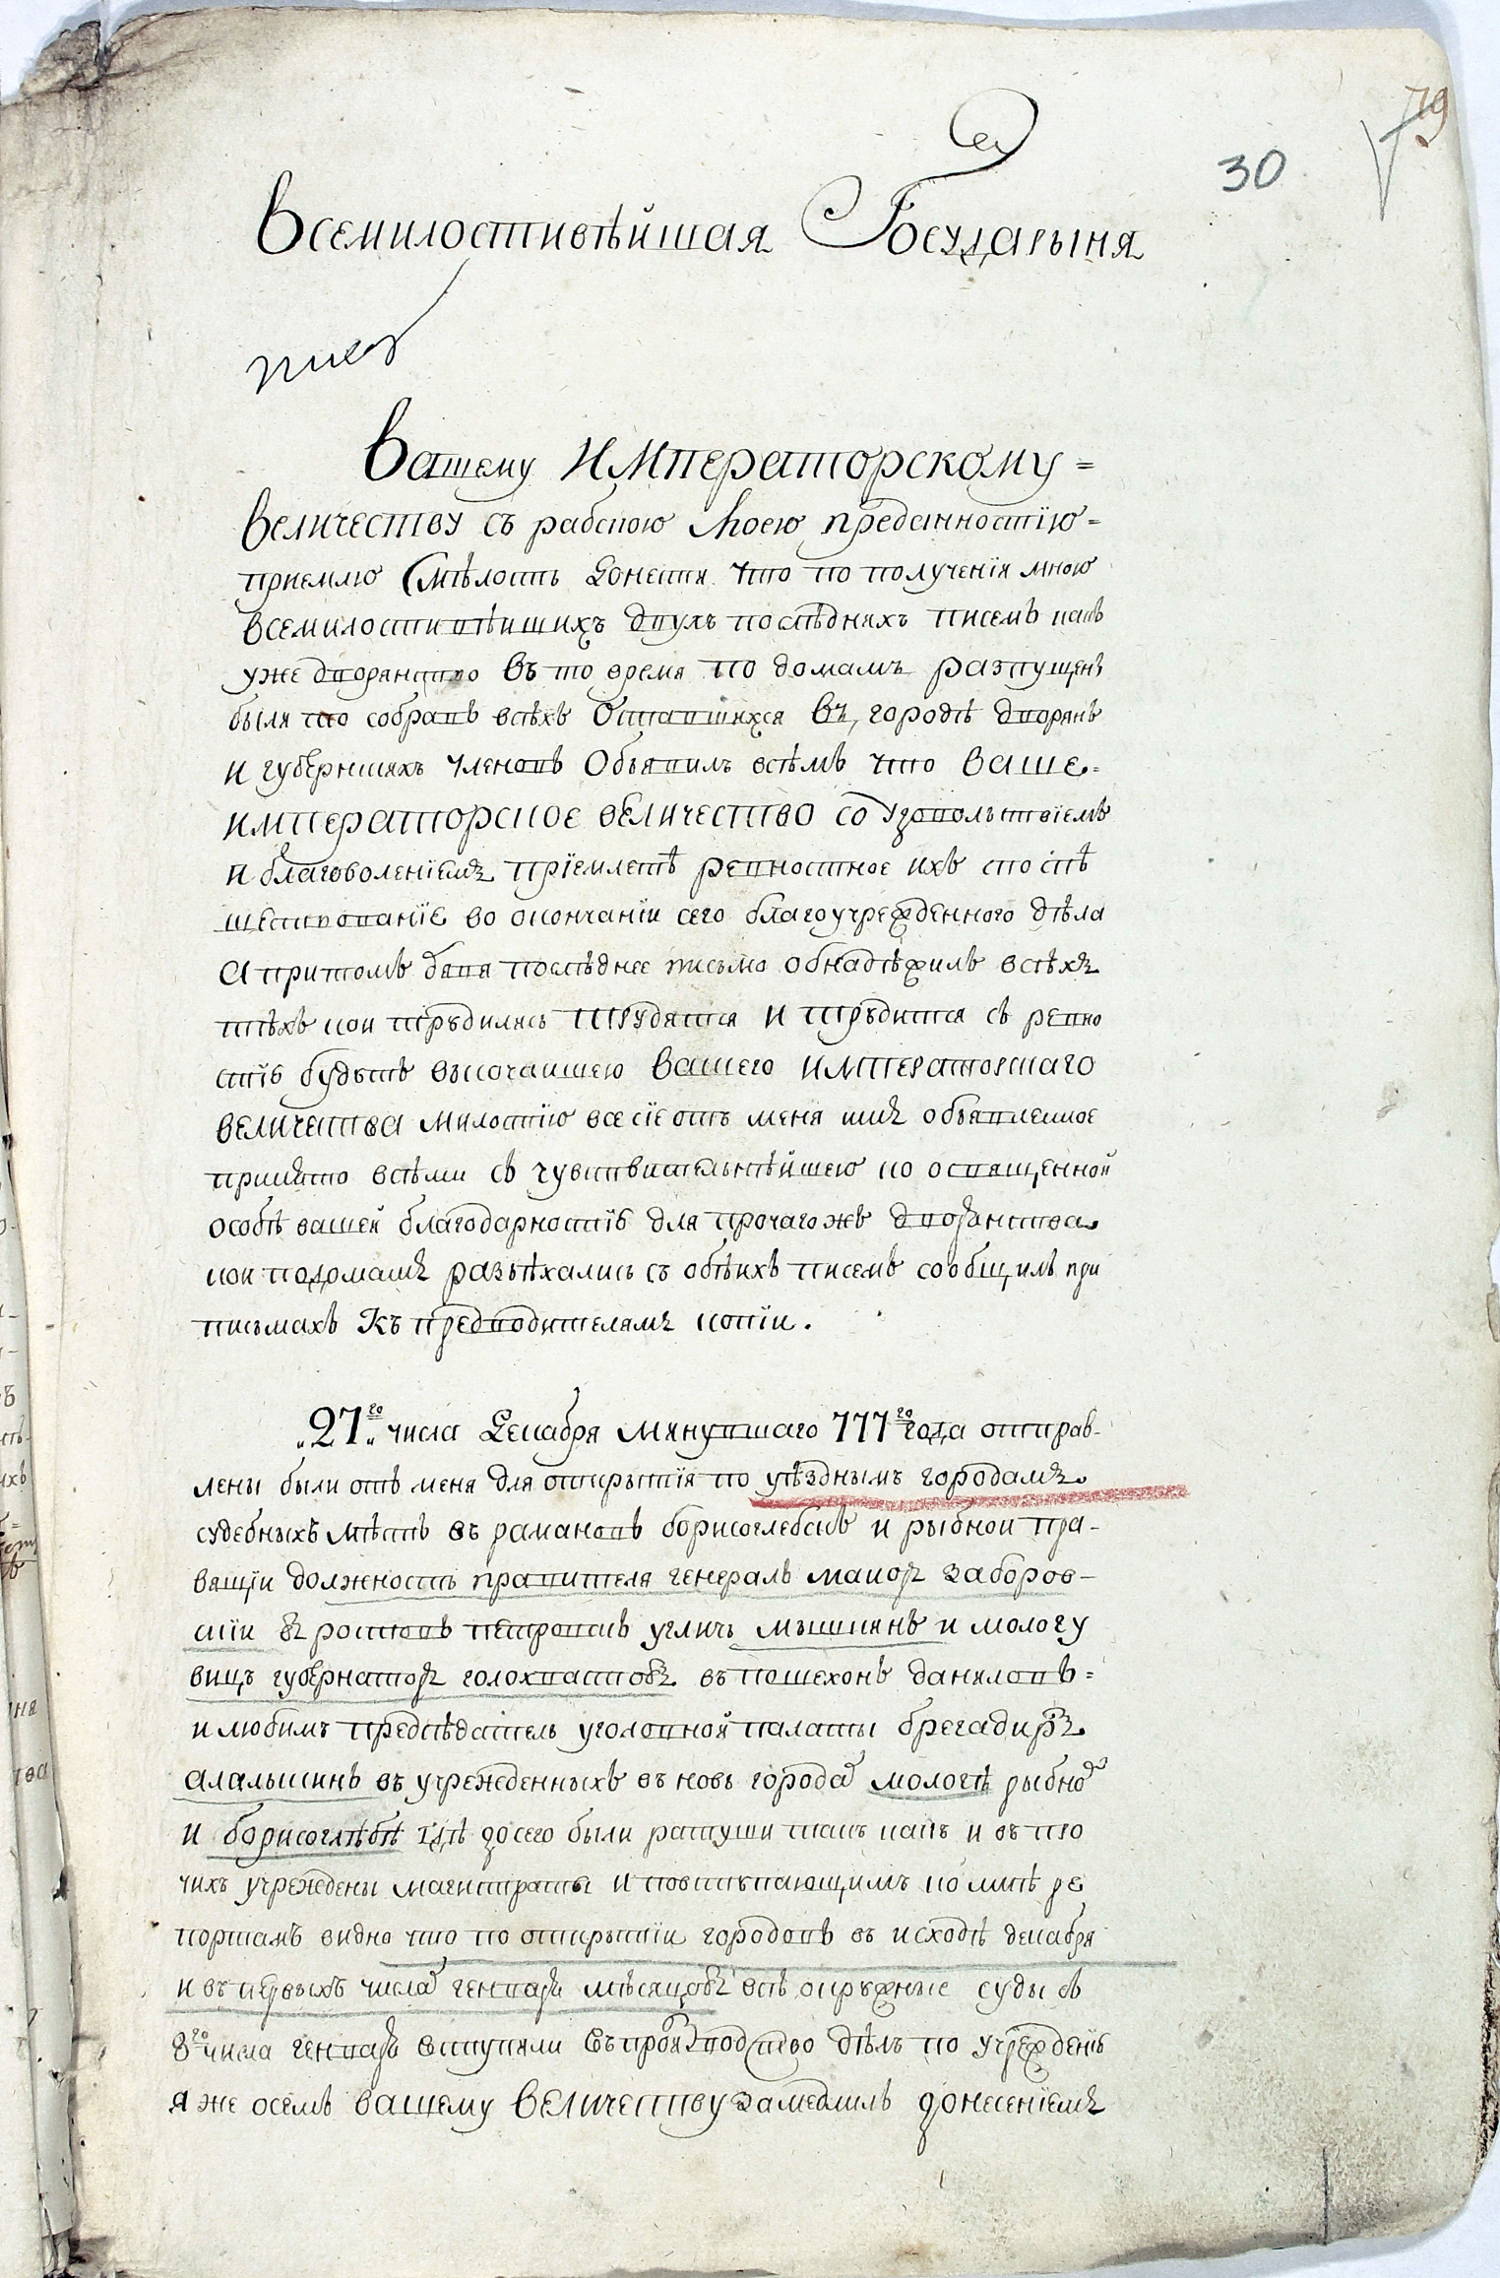 79
30
Всемилостивѣйшая Государыня
Вашему Императорскому =
Величеству съ рабскою Моею преданностїю =
приемлю Смѣлость донести что по полученїи мною
всемилостивѣишихъ двухъ послѣднихъ писемъ какъ
уже дворянство въ то время по домамъ разпущенъ
были то собравъ всѣхъ Оставшихся въ городѣ дворянъ
и губернскихъ членовъ Объявилъ всѣмъ что ваше =
императорское величество со удовольствїемъ
и благоволенїемъ прїемлетъ ревностное ихъ споспѣ
шествованїе во окончанїи сего благоучрежденного дѣла
А притомъ последнее письмо обнадѣжилъ всѣхъ
тѣхъ кои трудились трудятся и трудится съ ревно
стїю будетъ высочаишею вашего императорскаго
величества милостїю все сїе отъ меня имъ объявленное
принято всѣми съ чувствительнѣйшею ко освященной
особѣ вашей благодарностїю для прочагожъ дворянства
кои подомамъ разъѣхались съ обѣихъ писемъ сообщилъ при
письмахъ Къ предводителямъ копїи.
„27го„ числа Декабря минувшаго 777го года отправ-
лены были отъ меня для открытїя по уѣзднымъ городамъ
судебныхъ мѣстъ въ рамановъ борисоглебскъ и рыбнои пра-
вящїи должность правителя генералъ маиоръ Заборов-
скїи въ ростовъ петровскъ угличъ мышкинъ и мологу
вицъ губернаторъ голохвастовъ въ пошехонъ даниловъ =
и любимъ предсѣдатель уголовной палаты брегадиръ
алалыкинъ въ учрежденныхъ въ новь города мологѣ рыбно
и борисоглѣбѣ гдѣ досего были ратуши такъ какъ и въ про
чихъ учреждены магистраты и повступающимъ ко мнѣ ре
портамъ видно что по открытїи городовъ въ исходѣ декабря
и въ первыхъ числа генваря мѣсяцовъ всѣ окружные суды съ
8го числа генваря вступили въ произподство дѣлъ по учрежденїю
я же осемъ вашему величеству замедлилъ донесенїемъ